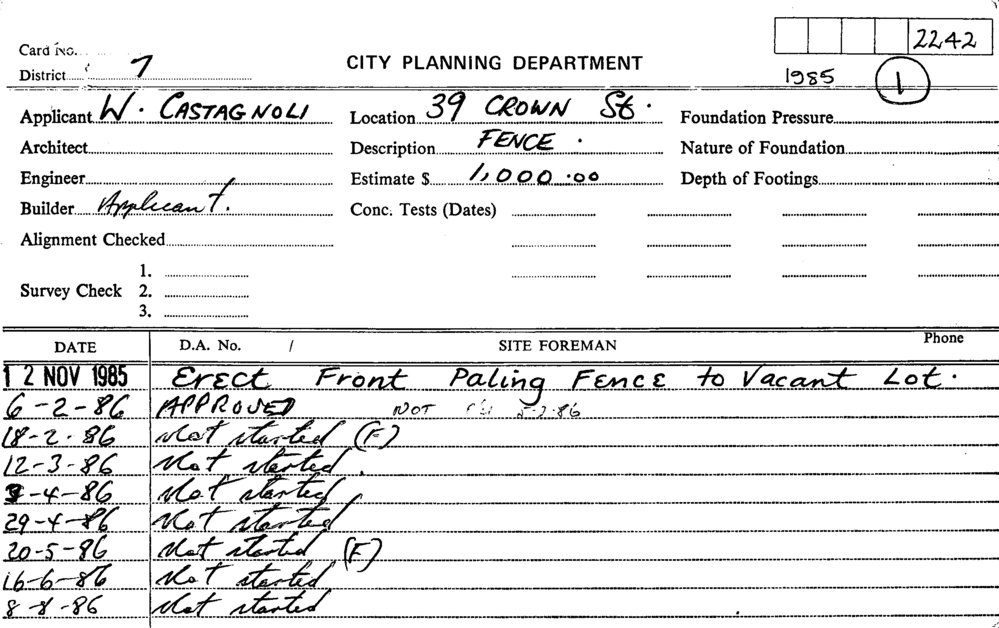 2242
Card No.
District 7
CITY PLANNING DEPARTMENT
1985 1
Applicant W. CASTAGNOLI
Location 39 CROWN St.
Foundation Pressure
Architect
Description FENCE.
Nature of Foundation
Engineer
Estimate $ 1,000.00
Depth of Footings
Builder Applicant.
Conc. Tests (Dates)
Alignment Checked
1.
Survey Check 2.
3.
DATE D.A. No. / SITE FOREMAN Phone
12 NOV 1985 Erect Front Paling Fence to Vacant Lot.
6-2-86 APPROVED NOT 5-2-86
18-2-86 Not started (F)
12-3-86 Not started.
-4-86 Not started
29-4-86 Not started
20-5-86 Not started (F)
16-6-86 Not started
8-8-86 Not started